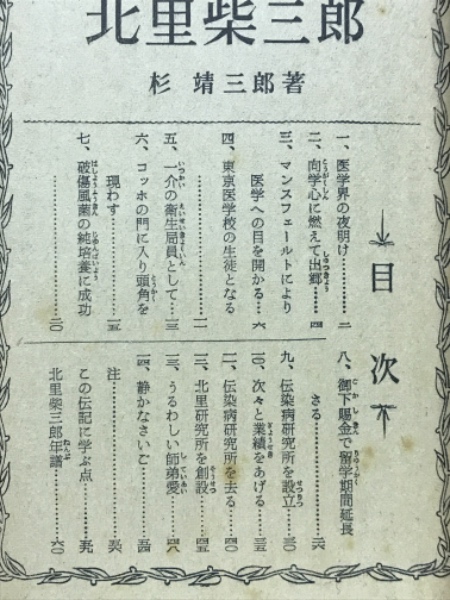 北里柴三郎
杉 靖三郎著
目次
一、医学界の夜明け………二
二、向学心に燃えて出郷………四
三、マンスフェールトにより
医学への目を開かる…六
四、東京医学校の生徒となる
………一一
五、一介の衛生局員として…一三
六、コッホの門に入り頭角を
現わす………一五
七、破傷風菌の純培養に成功
………二〇
八、御下賜金で留学期間延長
さる………二六
九、伝染病研究所を設立…三〇
一〇、次々と業績をあげる…三五
一一、伝染病研究所を去る…四〇
一二、北里研究所を創設…四五
一三、うるわしい師弟愛…四八
一四、静かなさいご…五四
注………五八
この伝記に学ぶ点…五九
北里柴三郎年譜…六〇